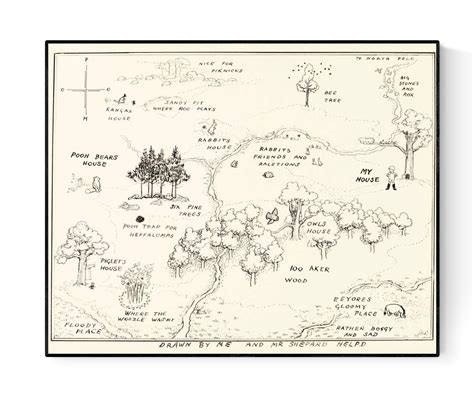 NICE FOR
PIKNICKS
TO NORTH POLE
BIG
STONES
AND
ROX
P
BEE
TREE
SANDY PIT
WHERE ROO PLAYS
KANGAS
HOUSE
RABBITS
HOUSE
RABBITS
FRIENDS AND
RALETIONS
POOH BEARS
HOUSE
MY
HOUSE
SIX PINE
TREES
POOH TRAP FOR
HEFFALUMPS
OWLS
HOUSE
PIGLETS
HOUSE
100 AKER
WOOD
WHERE THE
WOOZLE WASNT
EEYORES
GLOOMY
PLACE
FLOODY
PLACE
RATHER BOGGY
AND SAD
DRAWN BY ME AND MR SHEPARD HELPD